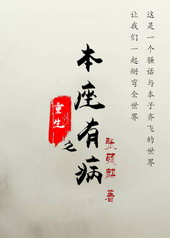 这是一个骚话与本子齐飞的世界
让我们一起掰弯全世界
重生
之
本座有病
著